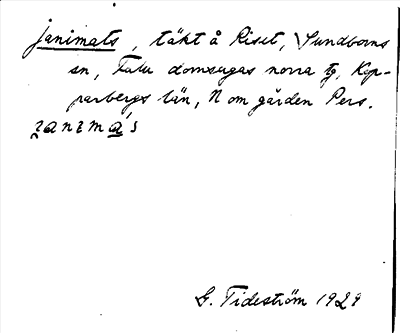 Janimats, täkt å Riset, Sundborns
sn, Falu domsagas norra tg, Kop-
parbergs län, N om gården Pers.
G. Tideström 1929